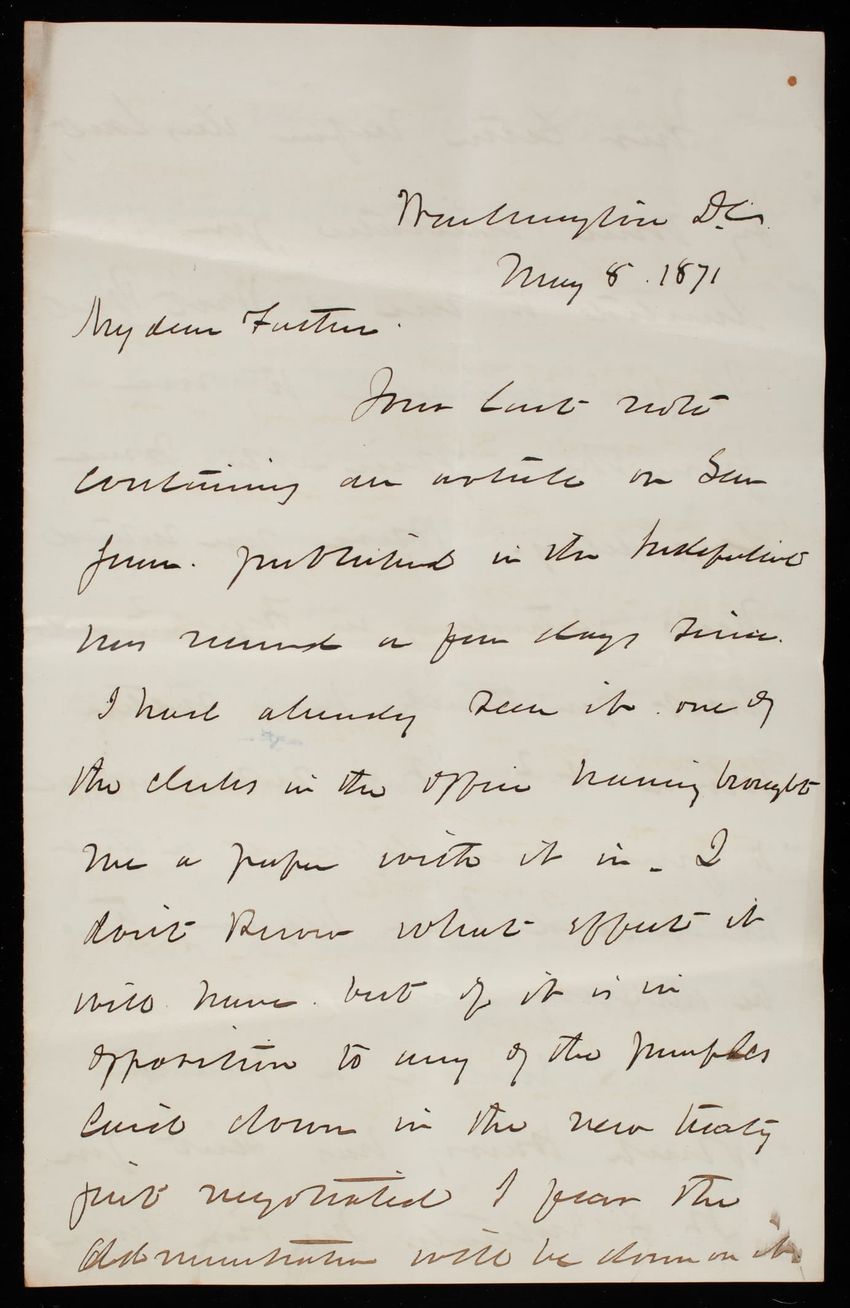 Washington D.C.
May 8. 1871
My dear Foster.
Your last note
containing an article on San
Juan. published in the Independent
was received a few days since.
I had already seen it. one of
the clerks in the office having brought
me a paper with it in - I
don't know what effect it
will have. but if it is in
opposition to any of the principles
laid down in the new treaty
just negotiated I fear the
administration will be down on it